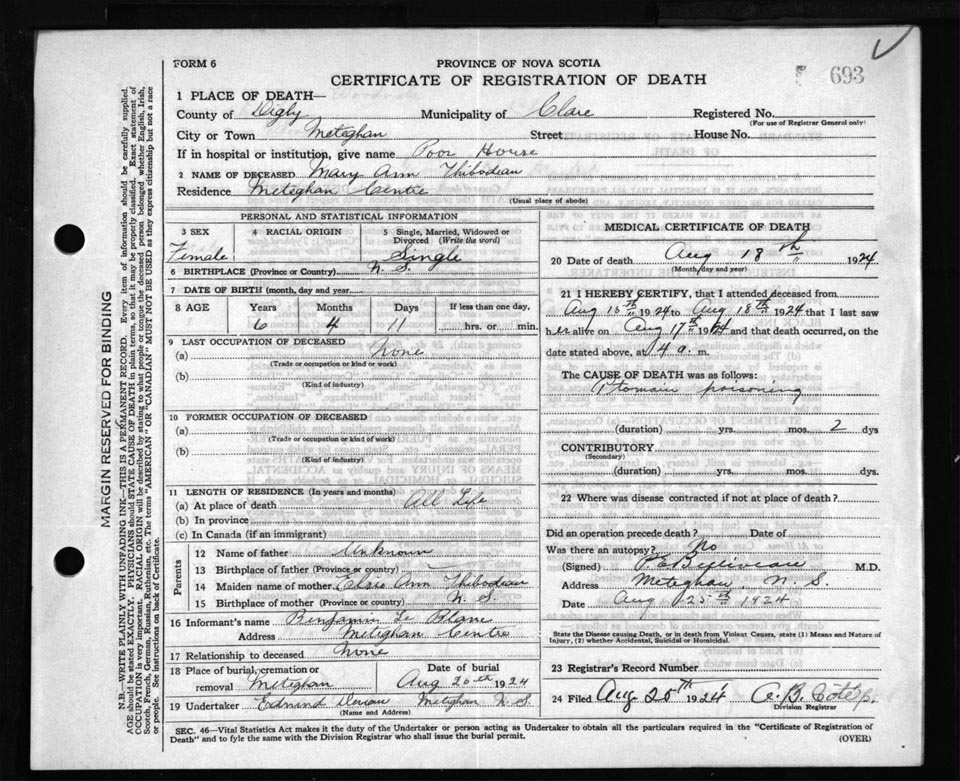 FORM 6
PROVINCE OF NOVA SCOTIA
CERTIFICATE OF REGISTRATION OF DEATH
693
1 PLACE OF DEATH—
County of Digby Municipality of Clare Registered No.
(For use of Registrar General only)
City or Town Meteghan Street House No.
If in hospital or institution, give name Poor House
2 NAME OF DECEASED Mary Ann Thibodeau
Residence Meteghan Centre
(Usual place of abode)
PERSONAL AND STATISTICAL INFORMATION
3 SEX 4 RACIAL ORIGIN 5 Single, Married, Widowed or Divorced (Write the word)
Female Single
6 BIRTHPLACE (Province or Country) N. S.
7 DATE OF BIRTH (month, day and year)
8 AGE Years Months Days If less than one day,
6 4 11 hrs. or min.
9 LAST OCCUPATION OF DECEASED
(a) none
(Trade or occupation or kind or work)
(b)
(Kind of industry)
10 FORMER OCCUPATION OF DECEASED
(a)
(Trade or occupation or kind of work)
(b)
(Kind of industry)
11 LENGTH OF RESIDENCE (In years and months)
(a) At place of death All Life
(b) In province
(c) In Canada (if an immigrant)
Parents
12 Name of father Unknown
13 Birthplace of father (Province or country)
14 Maiden name of mother Elsie Ann Thibodeau
15 Birthplace of mother (Province or country) N. S.
16 Informant's name Benjamin Le Blanc
Address Meteghan Centre
17 Relationship to deceased None
18 Place of burial, cremation or removal Meteghan
Date of burial Aug 20th 1924
19 Undertaker Edmund Meteghan N. S.
(Name and Address)
MEDICAL CERTIFICATE OF DEATH
20 Date of death Aug 18th 1924
(Month, day and year)
21 I HEREBY CERTIFY, that I attended deceased from
Aug 15th 1924 to Aug 18th 1924 that I last saw
her alive on Aug 17th 1924 and that death occurred, on the
date stated above, at 4 a. m.
The CAUSE OF DEATH was as follows:
Ptomain poisoning
(duration) yrs. mos. 2 dys
CONTRIBUTORY
(Secondary)
(duration) yrs. mos. dys.
22 Where was disease contracted if not at place of death?
Did an operation precede death? Date of
Was there an autopsy? No
(Signed) M.D.
Address Meteghan N. S.
Date Aug 25th 1924
State the Disease causing Death, or in death from Violent Causes, state (1) Means and Nature of
Injury, (2) whether Accidental, Suicidal or Homicidal.
23 Registrar's Record Number
24 Filed Aug 25th 1924
Division Registrar
SEC. 46—Vital Statistics Act makes it the duty of the Undertaker or person acting as Undertaker to obtain all the particulars required in the "Certificate of Registration of
Death" and to fyle the same with the Division Registrar who shall issue the burial permit.
(OVER)
MARGIN RESERVED FOR BINDING
N.B.—WRITE PLAINLY WITH UNFADING INK—THIS IS A PERMANENT RECORD. Every item of information should be carefully supplied.
AGE should be stated EXACTLY. PHYSICIANS should STATE CAUSE OF DEATH in plain terms, so that it may be properly classified. Exact statement of
OCCUPATION is very important. RACIAL ORIGIN will be described by stating to what people or tongue the deceased person belonged whether English, Irish,
Scotch, French, German, Russian, Ruthenian, etc. The terms "AMERICAN" OR "CANADIAN" MUST NOT BE USED as they express citizenship but not a race
or people. See instructions on back of Certificate.